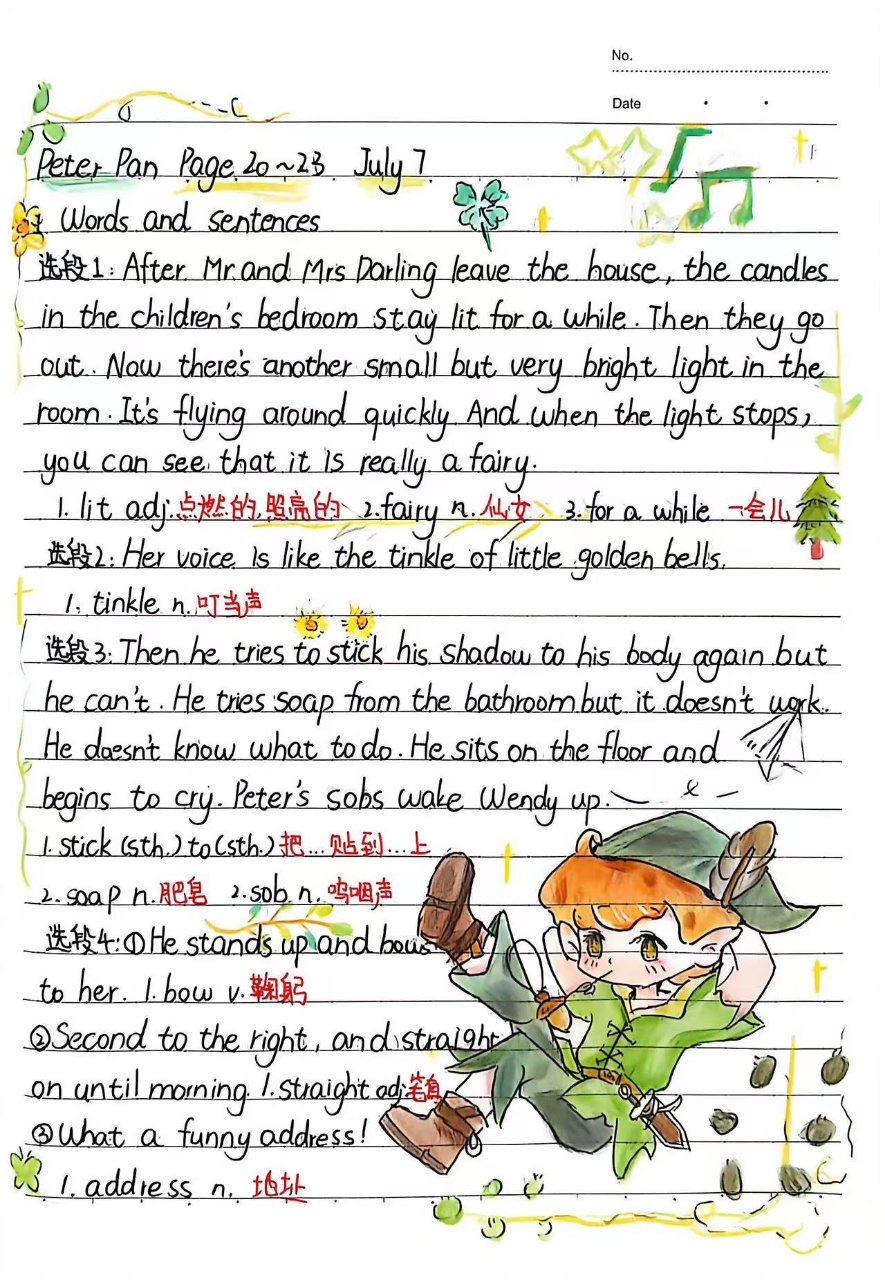 No.
Date
Peter Pan Page 20~23 July 7
Words and sentences
选段1: After Mr.and Mrs Darling leave the house, the candles
in the children's bedroom stay lit for a while. Then they go
out. Now there's another small but very bright light in the
room. It's flying around quickly. And when the light stops,
you can see that it is really a fairy.
1. lit adj.点燃的,照亮的 2.fairy n.仙女 3.for a while 一会儿
选段2: Her voice is like the tinkle of little golden bells.
1. tinkle n.叮当声
选段3: Then he tries to stick his shadow to his body again but
he can't. He tries soap from the bathroom but it doesn't work.
He doesn't know what to do. He sits on the floor and
begins to cry. Peter's sobs wake Wendy up.
1. stick (sth.) to (sth.) 把...贴到...上
2. soap n.肥皂 2.sob n.呜咽声
选段4:①He stands up and bows
to her. 1. bow v.鞠躬
②Second to the right, and straight
on until morning. 1. straight adj.笔直
③What a funny address!
1. address n. 地址